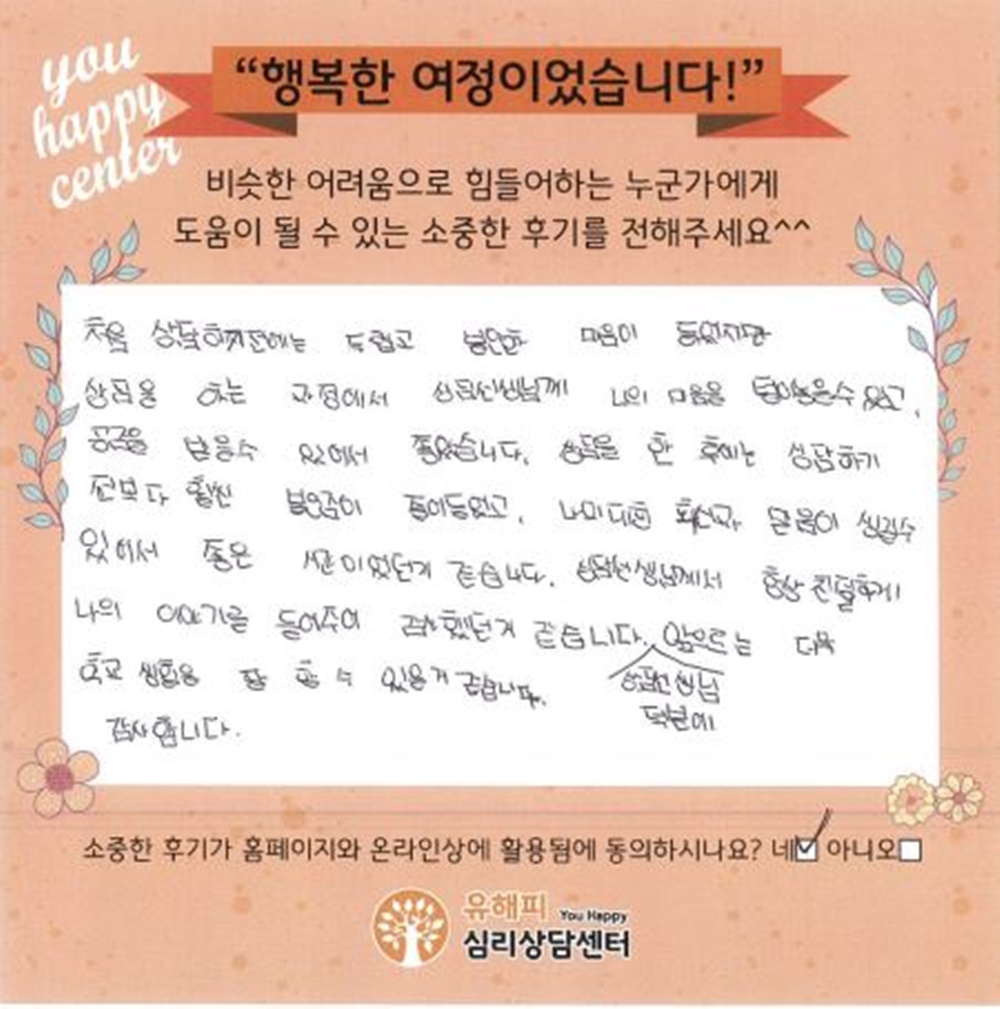 you
happy
center
“행복한 여정이었습니다!”
비슷한 어려움으로 힘들어하는 누군가에게
도움이 될 수 있는 소중한 후기를 전해주세요^^
처음 상담하기 전에는 두렵고 불안한 마음이 들었지만
상담을 하는 과정에서 상담선생님께 나의 마음을 털어놓을수 있고,
공감을 받을수 있어서 좋았습니다. 상담을 한 후에는 상담하기
전보다 훨씬 불안감이 줄어들었고, 나에 대한 확신과 믿음이 생길수
있어서 좋은 시간이었던거 같습니다. 상담선생님께서 항상 친절하게
나의 이야기를 들어주어 감사했던거 같습니다. 앞으로는 더욱
학교 생활을 잘 할 수 있을거 같습니다. 상담선생님
덕분에
감사합니다.
소중한 후기가 홈페이지와 온라인상에 활용됨에 동의하시나요? 네☑ 아니오☐
유해피 You Happy
심리상담센터